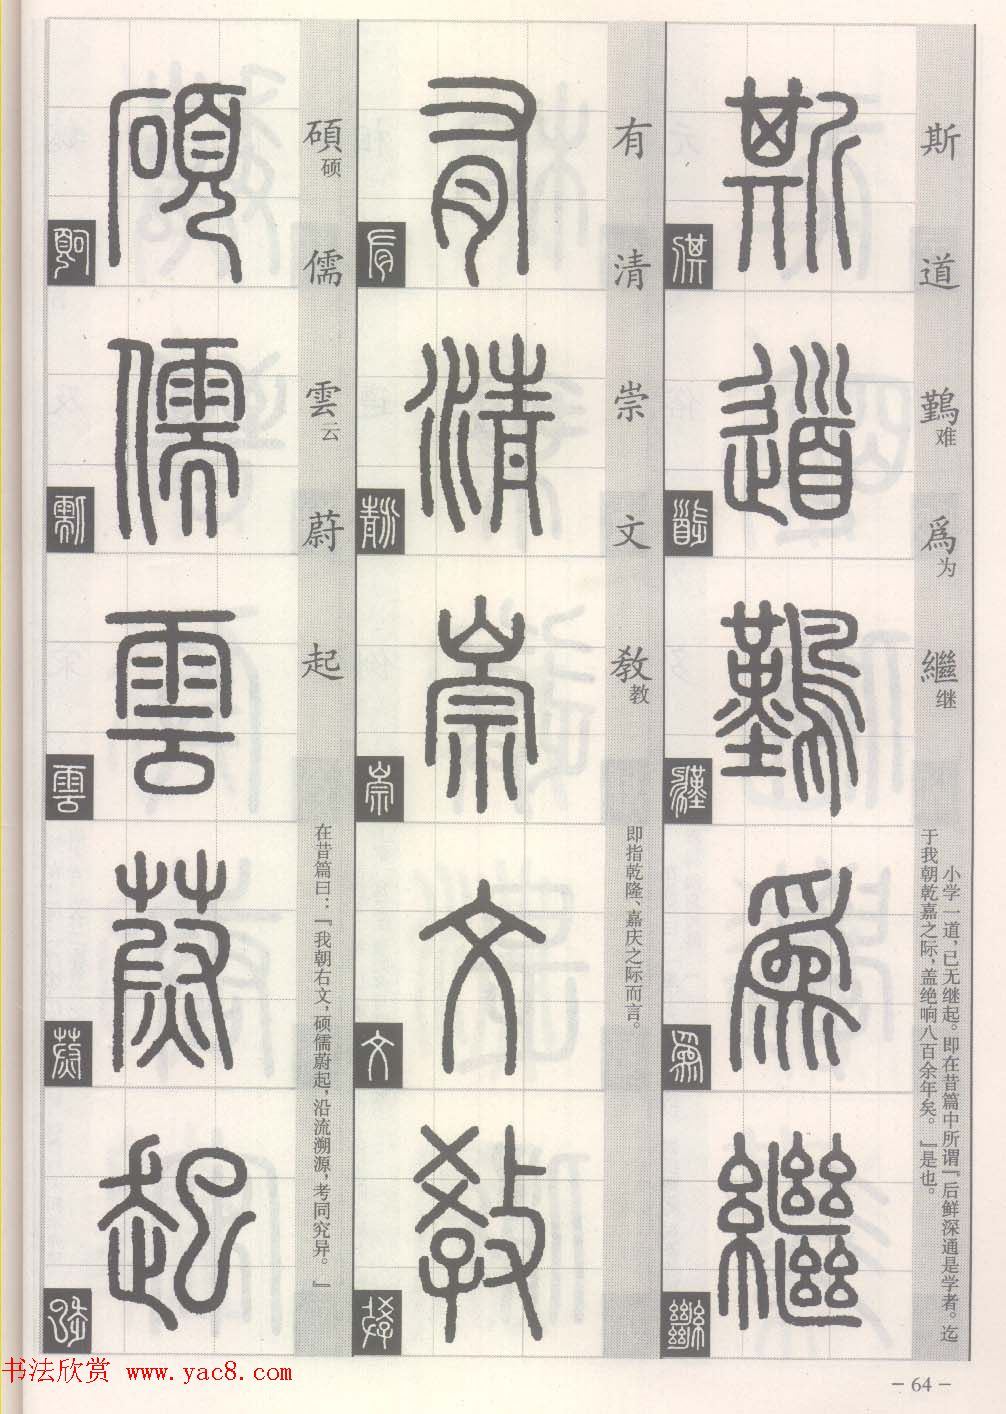 斯道鷬难爲为繼继
小学一道，已无继起。即在昔篇中所谓『后鲜深通是学者。迄
于我朝乾嘉之际，盖绝响八百余年矣。』是也。
斯
道
爲
繼
有清崇文敎教
即指乾隆、嘉庆之际而言。
有
清
崇
文
敎
碩硕儒雲云蔚起
在昔篇曰：『我朝右文，硕儒蔚起，沿流溯源，考同究异。』
碩
儒
雲
蔚
起
书法欣赏 www.yac8.com
－64－